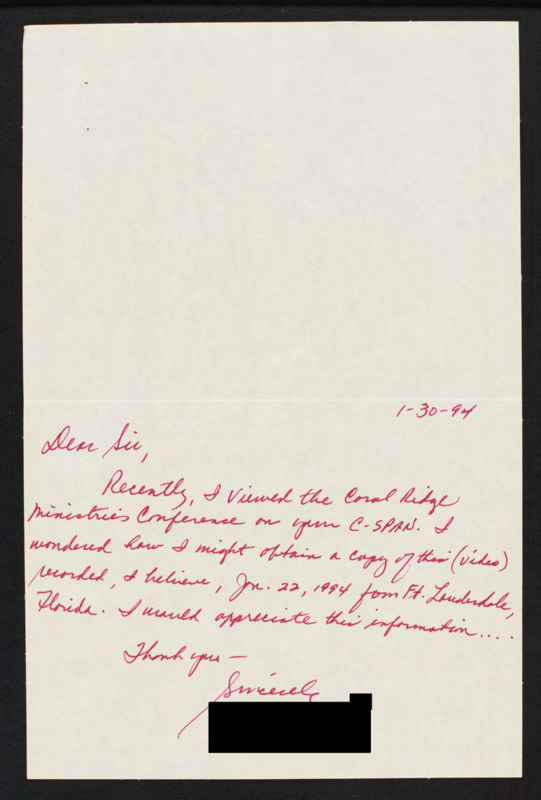 1-30-94
Dear Sir,
Recently, I viewed the Coral Ridge
Ministries Conference on your C-SPAN. I
wondered how I might obtain a copy of this (video)
recorded, I believe, Jn. 22, 1994 from Ft. Lauderdale,
Florida. I would appreciate this information....
Thank you —
Sincerely